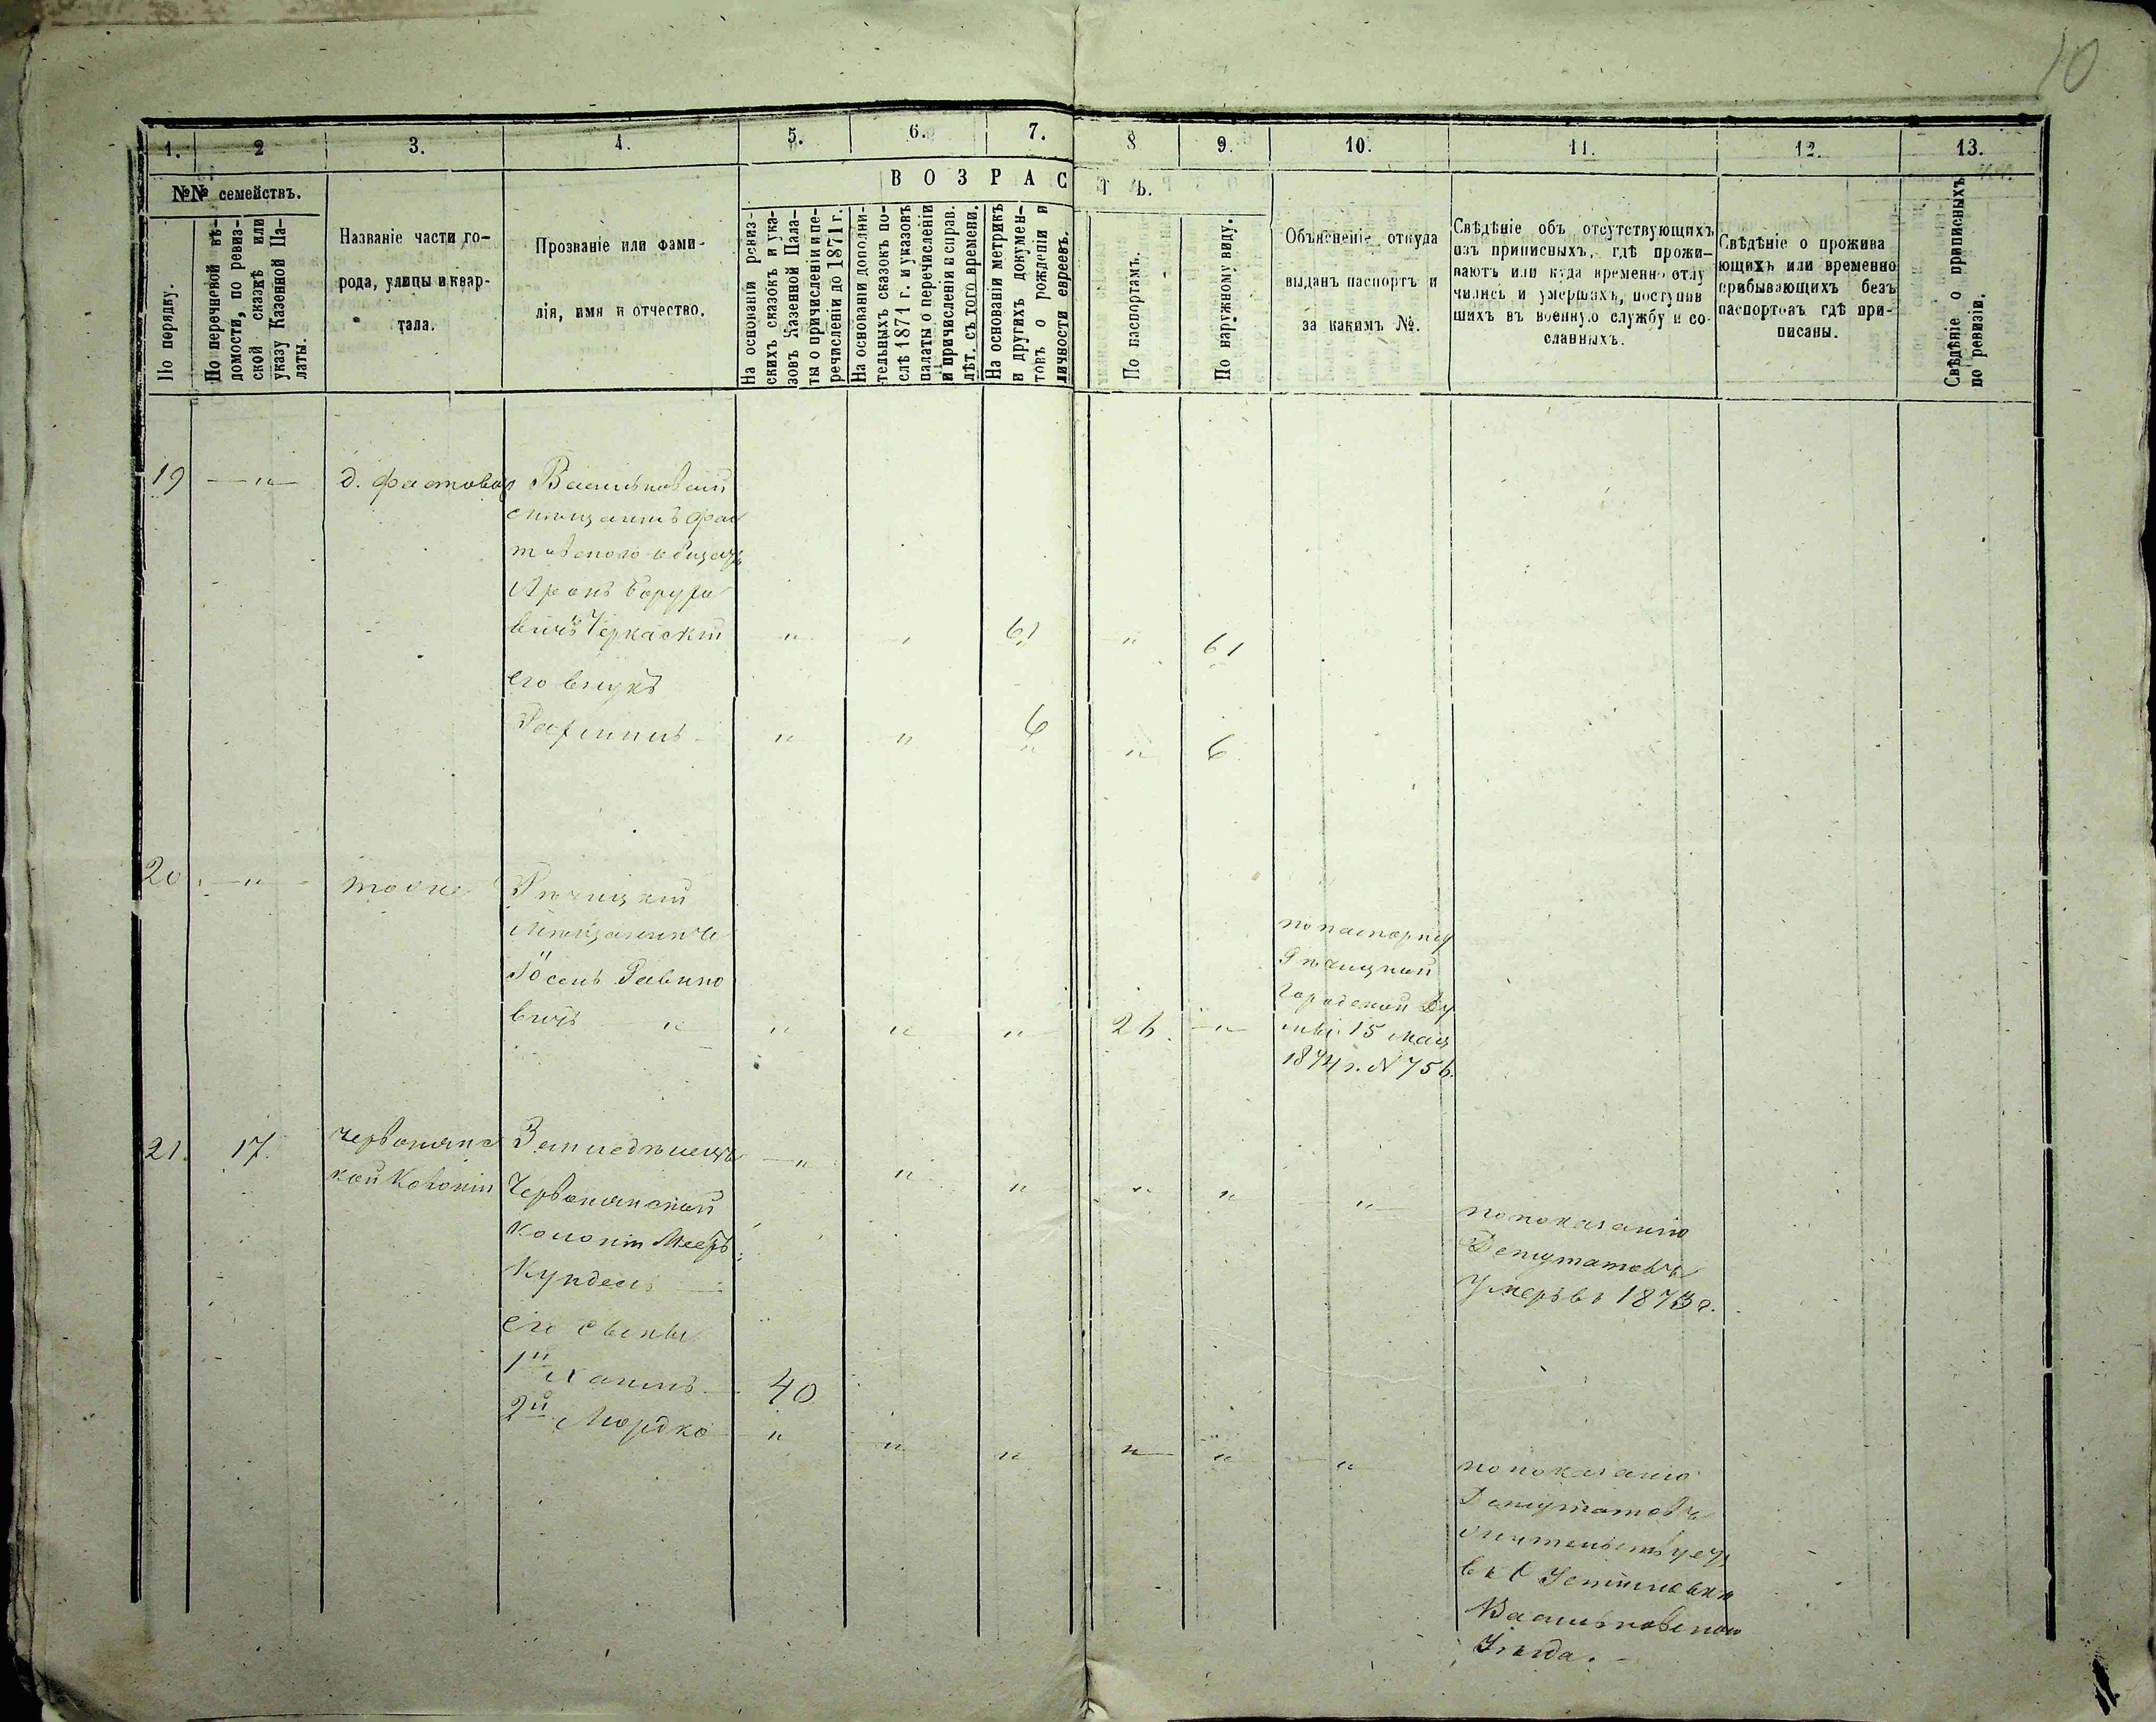 10
1. 2 3. 4. 5. 6. 7. 8 9. 10. 11. 12. 13.
№№ семействъ.
По порядку.
По перечневой вѣ-
домости, по ревиз-
ской сказкѣ или
указу Казенной Па-
латы.
Названіе части го-
рода, улицы и квар-
тала.
Прозваніе или фами-
лія, имя и отчество.
ВОЗРАСТЪ.
На основаніи ревиз-
скихъ сказокъ и ука-
зовъ Казенной Пала-
ты о причисленіи и пе-
речисленіи до 1871 г.
На основаніи дополни-
тельныхъ сказокъ по-
слѣ 1871 г. и указовъ
палаты о перечисленіи
и причисленіи и справ.
лѣт. съ того времени.
На основаніи метрикъ
и другихъ докумен-
товъ о рожденіи и
личности евреевъ.
По паспортамъ.
По наружному виду.
Объясненіе откуда
выданъ паспортъ и
за какимъ №.
Свѣдѣніе объ отсутствующихъ
изъ приписныхъ, гдѣ прожи-
ваютъ или куда временно отлу
чились и умершихъ, поступив
шихъ въ военную службу и со-
сланныхъ.
Свѣдѣніе о прожива
ющихъ или временно
прибывающихъ безъ
паспортовъ гдѣ при-
писаны.
Свѣдѣніе о приписныхъ
по ревизіи.
19 —"— д. Фастовая Васильковскій
мѣщанинъ Фас
товскаго общест
Аронъ Борухо
вичъ Черкаскій " " 61 " 61
его внукъ
Рахмиль " " 6 " 6
20. —"— тоже Рѣчицкій
Мѣщанинъ
Іосель Рабино
вичъ — " " " " 26. —"—
по паспорту
Рѣчицкой
Городской Ду
мы 15 Мая
1874 г. N 756.
21. 17. Червонянс
кой Колоніи
Земледѣлецъ —" " " " " "
Червонянской
Колоніи Мееръ
Купдель
по показанію
Депутатовъ
умеръ въ 1873 г.
его сыновья
1й Хаимъ 40
2й Мордко " " " " " "
по показанію
Депутатовъ
жительствуетъ
въ с Устимовкѣ
Васильковскаго
Уѣзда.